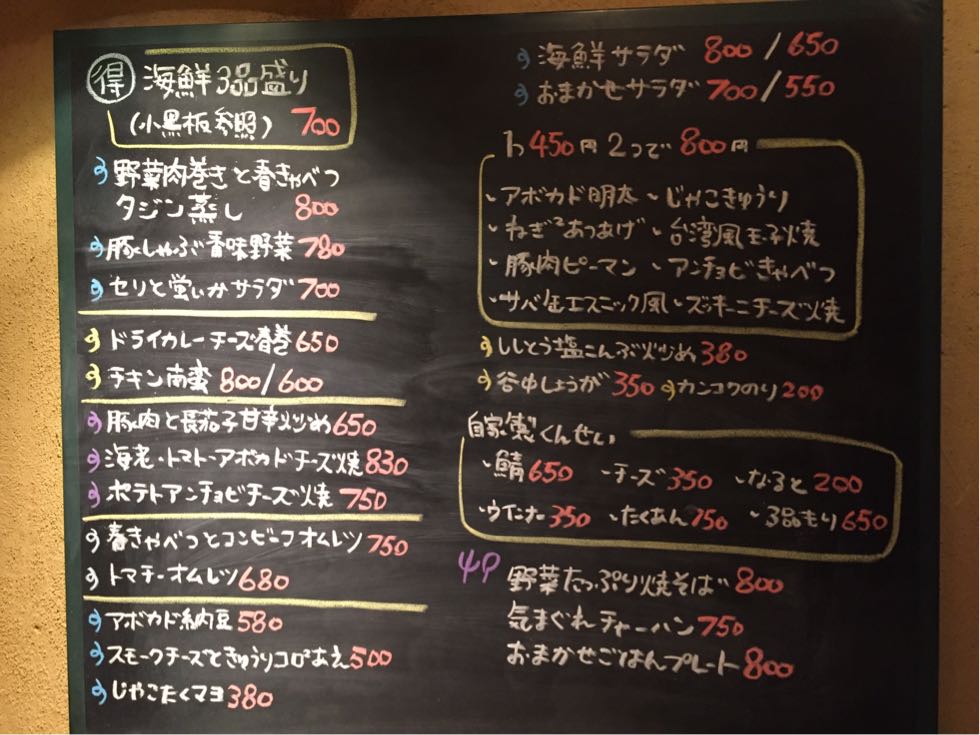 得 海鮮3品盛り
(小黒板参照) 700
野菜肉巻きと春きゃべつ
タジン蒸し 800
豚しゃぶ香味野菜 780
セリと蛍いかサラダ 700
ドライカレーチーズ春巻 650
チキン南蛮 800/600
豚肉と長茄子甘辛炒め 650
海老・トマト・アボカドチーズ焼 830
ポテトアンチョビチーズ焼 750
春きゃべつとコンビーフオムレツ 750
トマチーオムレツ 680
アボカド納豆 580
スモークチーズときゅうりコロコロあえ 500
じゃこたくマヨ 380
海鮮サラダ 800/650
おまかせサラダ 700/550
1つ450円 2つで800円
・アボカド明太 ・じゃこきゅうり
・ねぎねぎあつあげ ・台湾風玉子焼
・豚肉ピーマン ・アンチョビきゃべつ
・サバ缶エスニック風 ・ズッキーニチーズ焼
ししとう塩こんぶ炒め 380
谷中しょうが 350 カンコクのり 200
自家製くんせい
・鯖 650 ・チーズ 350 ・なると 200
・ウインナー 350 ・たくあん ・3品もり 650
野菜たっぷり焼そば 800
気まぐれチャーハン 750
おまかせごはんプレート 800